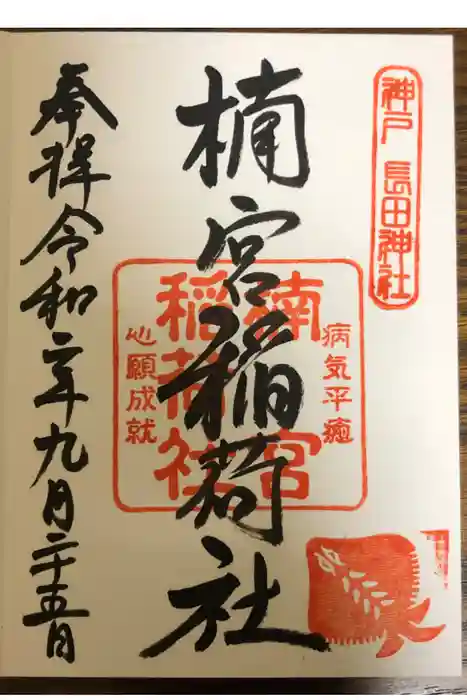 神戸 長田神社
楠宮稲荷社
病気平癒
楠宮
稲荷社
心願成就
奉拝 令和二年九月二十五日